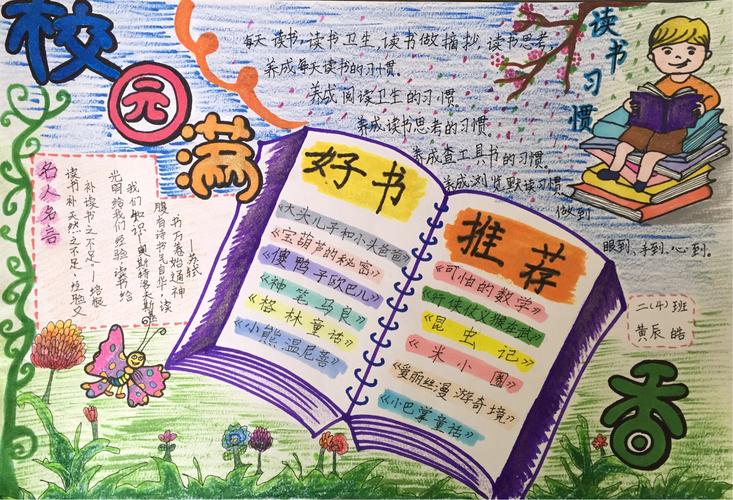 校园满香
读书习惯
每天读书,读书卫生,读书做摘抄,读书思考,
养成每天读书的习惯。
养成阅读卫生的习惯
养成读书思考的习惯
养成查工具书的习惯
养成浏览默读习惯,
做到
眼到、手到、心到。
名人名言
读书补天然之不足,经验又
补读书之不足——培根
光明给我们经验,读书给
我们知识——奥斯特洛夫斯基
腹有诗书气自华,读
书万卷始通神
——苏轼
好书
《大头儿子和小头爸爸》
《宝葫芦的秘密》
《傻鸭子欧巴儿》
《神笔马良》
《格林童话》
《小熊温尼菩》
推荐
《可怕的数学》
《行侠仗义
《昆虫记》
《米小圈》
《爱丽丝漫游奇境》
《小巴掌童话》
二(4)班
黄辰皓